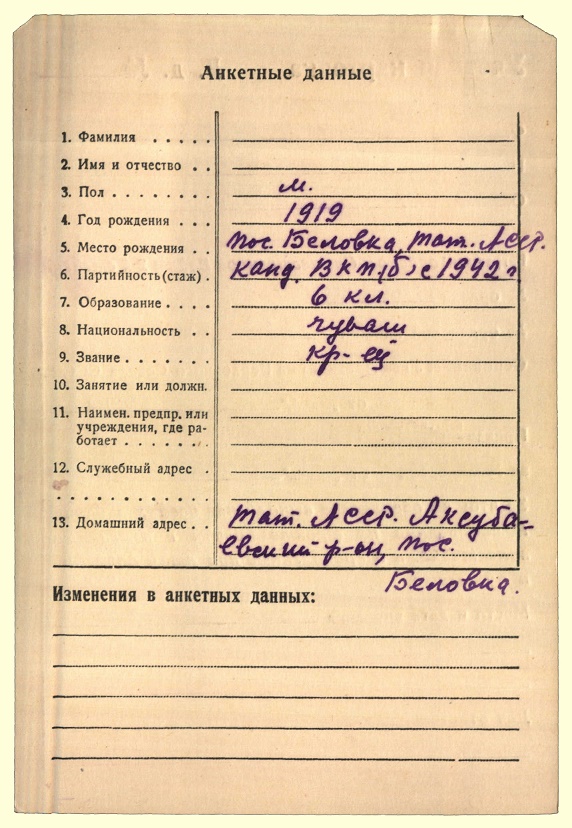 Анкетные данные
1. Фамилия . . . . .
2. Имя и отчество . .
3. Пол . . . . . . . м.
4. Год рождения . . . 1919
5. Место рождения . . пос. Беловка, тат. АССР.
6. Партийность (стаж) . канд. ВКП(б) с 1942 г.
7. Образование . . . . 6 кл.
8. Национальность . . чуваш
9. Звание . . . . . . . кр-ец
10. Занятие или должн.
11. Наимен. предпр. или
учреждения, где ра-
ботает . . . . . . .
12. Служебный адрес .
. . . . . . . . . . . .
13. Домашний адрес . . тат. АССР. Аксуба-
евский р-он, пос.
Беловка.
Изменения в анкетных данных: